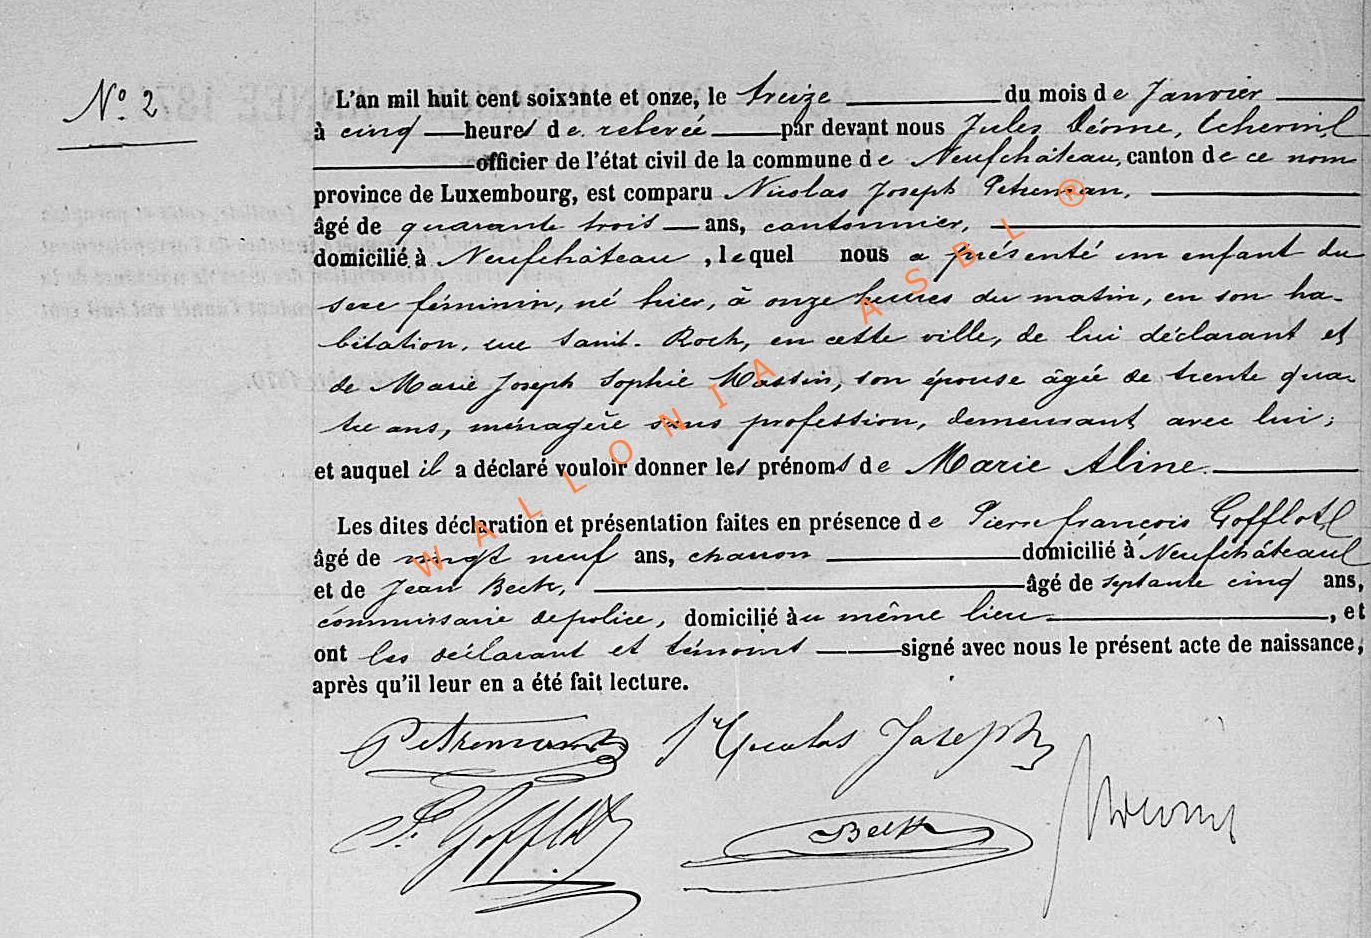 N° 2
L'an mil huit cent soixante et onze, le treize du mois de Janvier
à cinq heures de relevée par devant nous Jules Déome, Echevin,
officier de l'état civil de la commune de Neufchâteau, canton de ce nom
province de Luxembourg, est comparu Nicolas Joseph Petreman,
âgé de quarante trois ans, cantonnier,
domicilié à Neufchâteau, lequel nous a présenté un enfant du
sexe féminin, né hier, à onze heures du matin, en son ha-
bitation, rue Saint-Roch, en cette ville, de lui déclarant et
de Marie Joseph Sophie Massin, son épouse âgée de trente qua-
tre ans, ménagère sans profession, demeurant avec lui;
et auquel il a déclaré vouloir donner les prénoms de Marie Aline.
Les dites déclaration et présentation faites en présence de Pierre françois Gofflot
âgé de vingt neuf ans, charron domicilié à Neufchâteau
et de Jean Beck, âgé de septante cinq ans,
commissaire de police, domicilié au même lieu, et
ont les déclarant et témoins signé avec nous le présent acte de naissance,
après qu'il leur en a été fait lecture.
Petremant Nicolas Joseph
P. Gofflot Beck
WALLONIA ASBL ®